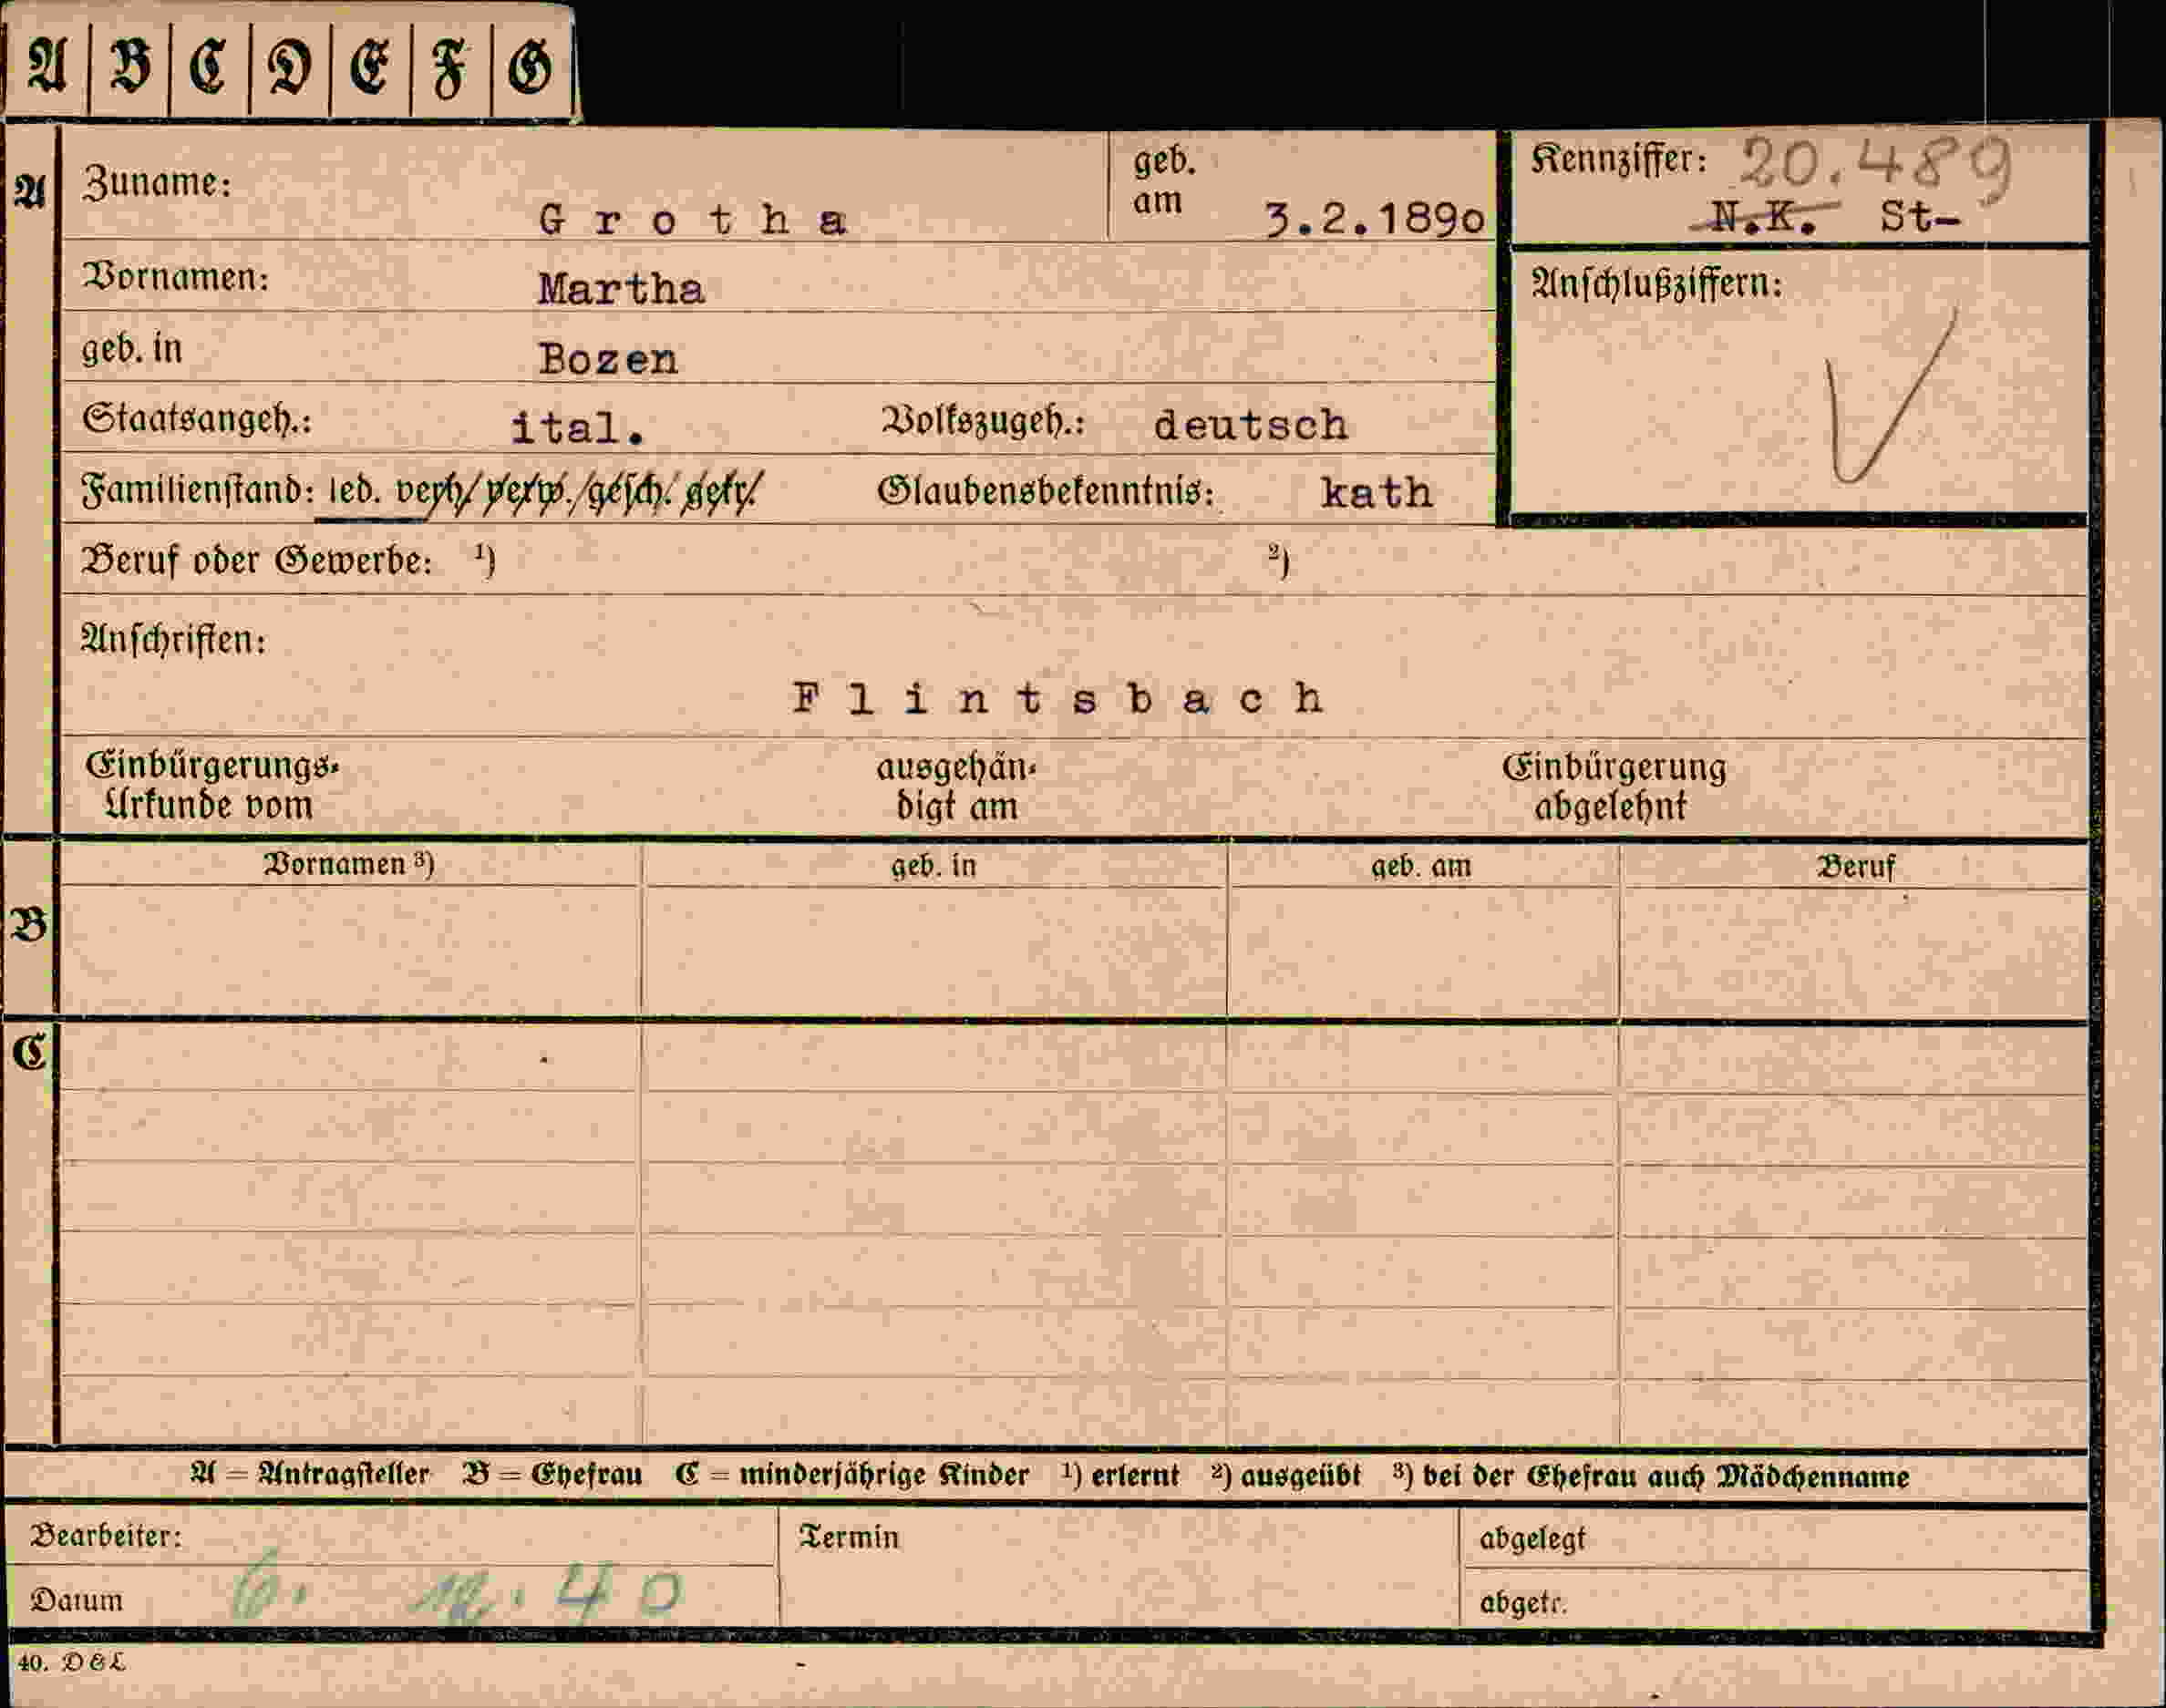 A B C D E F G
A Zuname: Grotha geb. am 3.2.1890
Kennziffer: 20.489
N.K. St-
Vornamen: Martha
Anschlußziffern:
geb. in Bozen
Staatsangeh.: ital. Volkszugeh.: deutsch
Familienstand: led. verh. verw. gesch. getr. Glaubensbekenntnis: kath
Beruf oder Gewerbe: ¹) ²)
Anschriften:
Flintsbach
Einbürgerungs- ausgehän- Einbürgerung
Urkunde vom digt am abgelehnt
Vornamen ³) geb. in geb. am Beruf
B
C
A = Antragsteller B = Ehefrau C = minderjährige Kinder ¹) erlernt ²) ausgeübt ³) bei der Ehefrau auch Mädchenname
Bearbeiter: Termin abgelegt
Datum 6. 12. 40 abgetr.
40. D&L